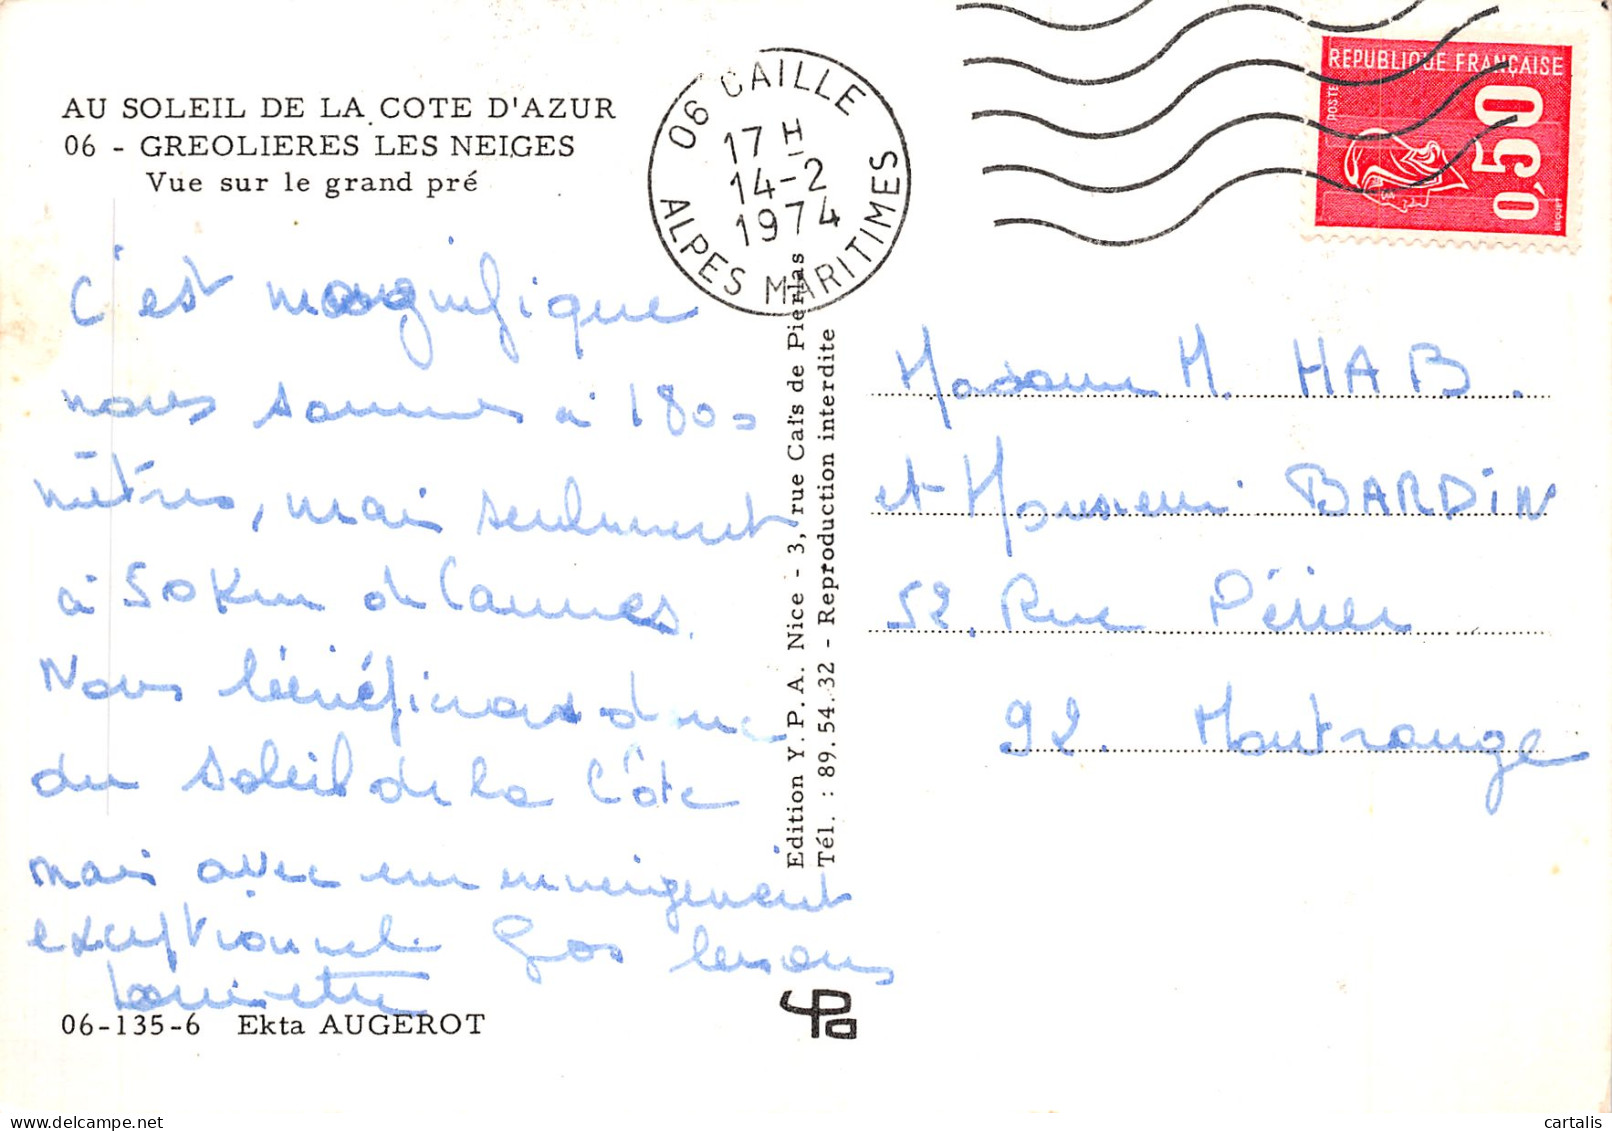 AU SOLEIL DE LA COTE D'AZUR
06 - GREOLIERES LES NEIGES
Vue sur le grand pré
06 CAILLE
17 H
14-2
1974
ALPES MARITIMES
REPUBLIQUE FRANÇAISE
POSTES
0,50
BEQUET
C'est magnifique
nous sommes à 1800
mètres, mais seulement
à 50 Km de Cannes.
Nous bénéficions donc
du soleil de la Côte
mais avec un enneigement
exceptionnel. Gros baisers
Edition Y. P. A. Nice - 3, rue Cais de Pierlas
Tél. : 89.54.32 - Reproduction interdite
Madame M. HAB.
et Monsieur BARDiN
52, Rue Périer
92. Montrouge
06-135-6 Ekta AUGEROT
YPa
cartalis